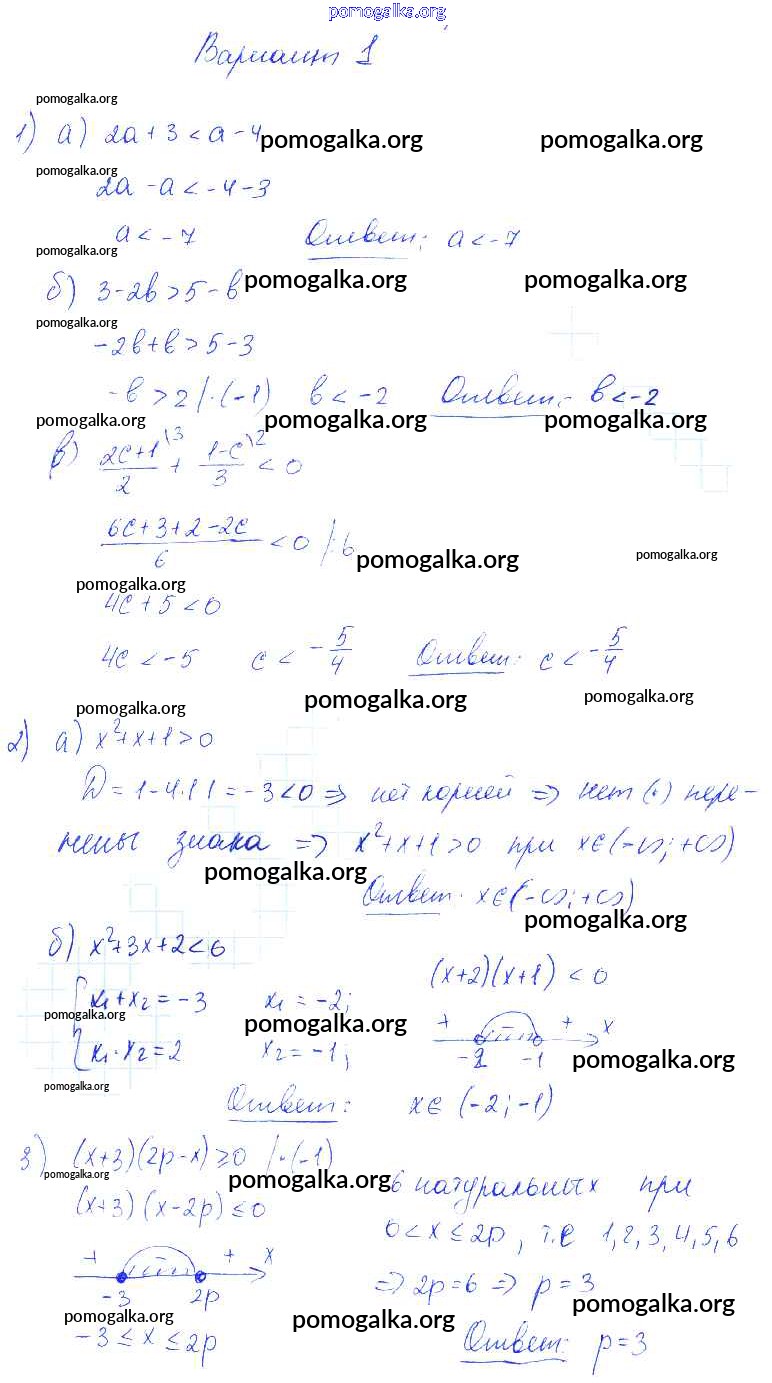 pomogalka.org
Вариант 1
pomogalka.org
1) а) 2a + 3 < a - 4 pomogalka.org pomogalka.org
pomogalka.org
2a - a < -4 - 3
a < -7 Ответ: a < -7
pomogalka.org
б) 3 - 2b > 5 - b pomogalka.org pomogalka.org
pomogalka.org
-2b + b > 5 - 3
-b > 2 | · (-1) b < -2 Ответ: b < -2
pomogalka.org pomogalka.org pomogalka.org
в) (2c+1)/2 \3 + (1-c)/3 \2 < 0
(6c + 3 + 2 - 2c)/6 < 0 | · 6 pomogalka.org pomogalka.org
pomogalka.org
4c + 5 < 0
4c < -5 c < -5/4 Ответ: c < -5/4
pomogalka.org pomogalka.org pomogalka.org
2) а) x² + x + 1 > 0
D = 1 - 4·1·1 = -3 < 0 => нет корней => нет (·) пере-
мены знака => x² + x + 1 > 0 при x∈(-∞; +∞)
pomogalka.org
Ответ: x∈(-∞; +∞)
pomogalka.org
б) x² + 3x + 2 < 6
(x+2)(x+1) < 0
{ x₁ + x₂ = -3 x₁ = -2;
pomogalka.org pomogalka.org
+ - + x
x₁ · x₂ = 2 x₂ = -1;
-2 -1 pomogalka.org
pomogalka.org
Ответ: x∈(-2; -1)
3) (x+3)(2p-x) ≥ 0 | · (-1)
pomogalka.org pomogalka.org 6 натуральных при
(x+3)(x-2p) ≤ 0
0 < x ≤ 2p, т.е 1, 2, 3, 4, 5, 6
+ - + x
-3 2p
=> 2p = 6 => p = 3
pomogalka.org pomogalka.org pomogalka.org
-3 ≤ x ≤ 2p
Ответ: p = 3